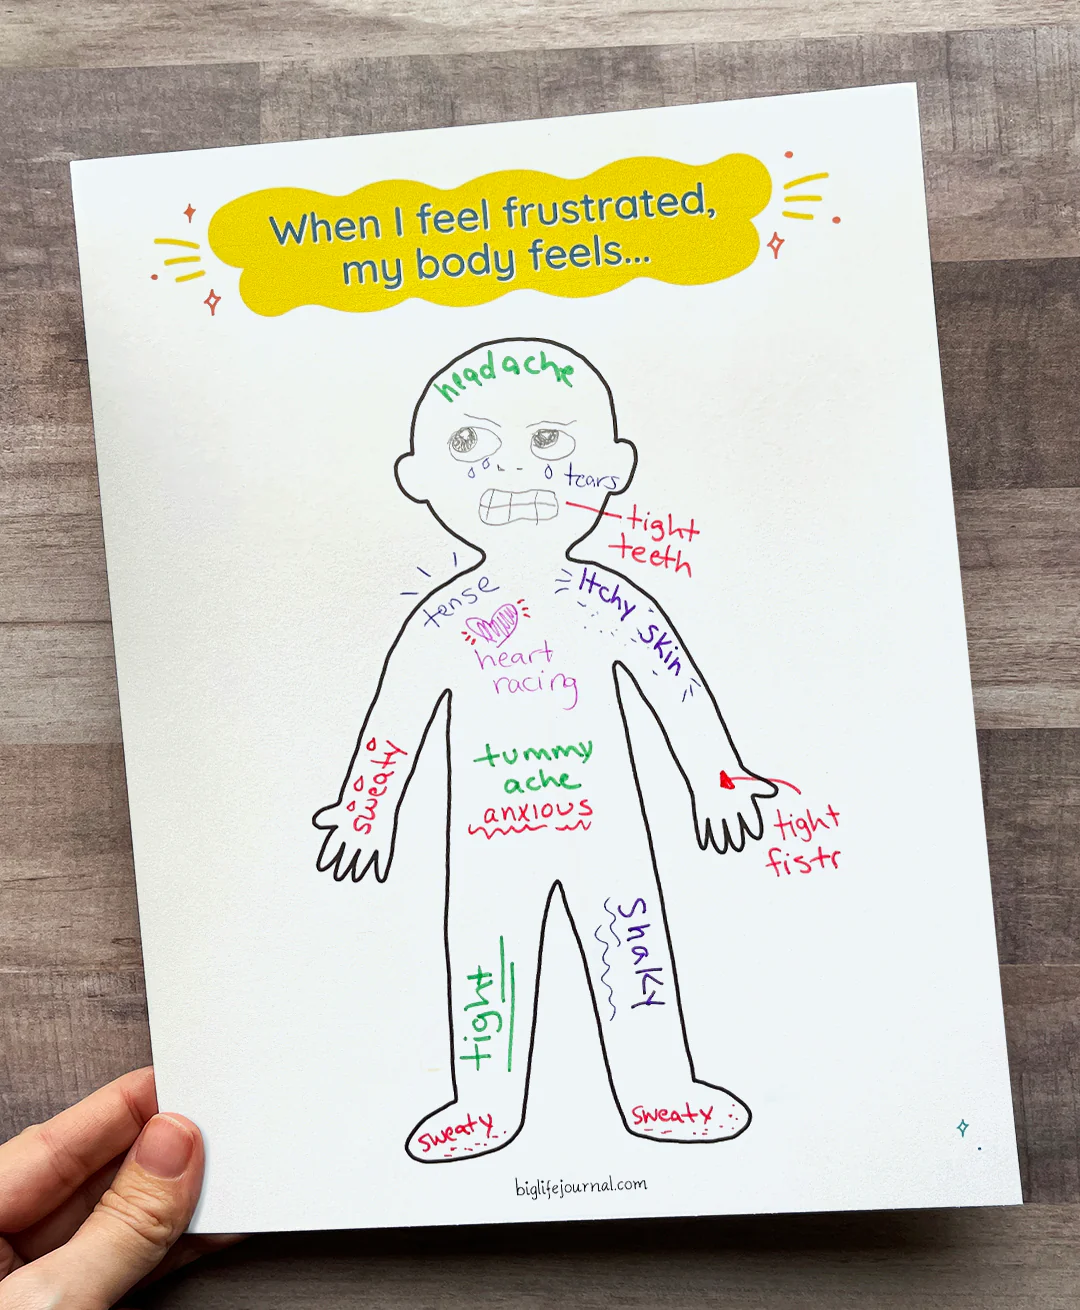 When I feel frustrated,
my body feels...
headache
tears
tight
teeth
tense
Itchy skin
heart
racing
sweaty
tummy
ache
anxious
tight
fists
tight
Shaky
sweaty
sweaty
biglifejournal.com